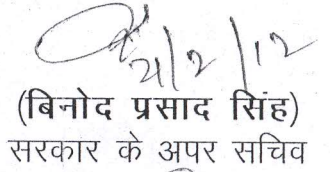 21/2/12
(बिनोद प्रसाद सिंह)
सरकार के अपर सचिव